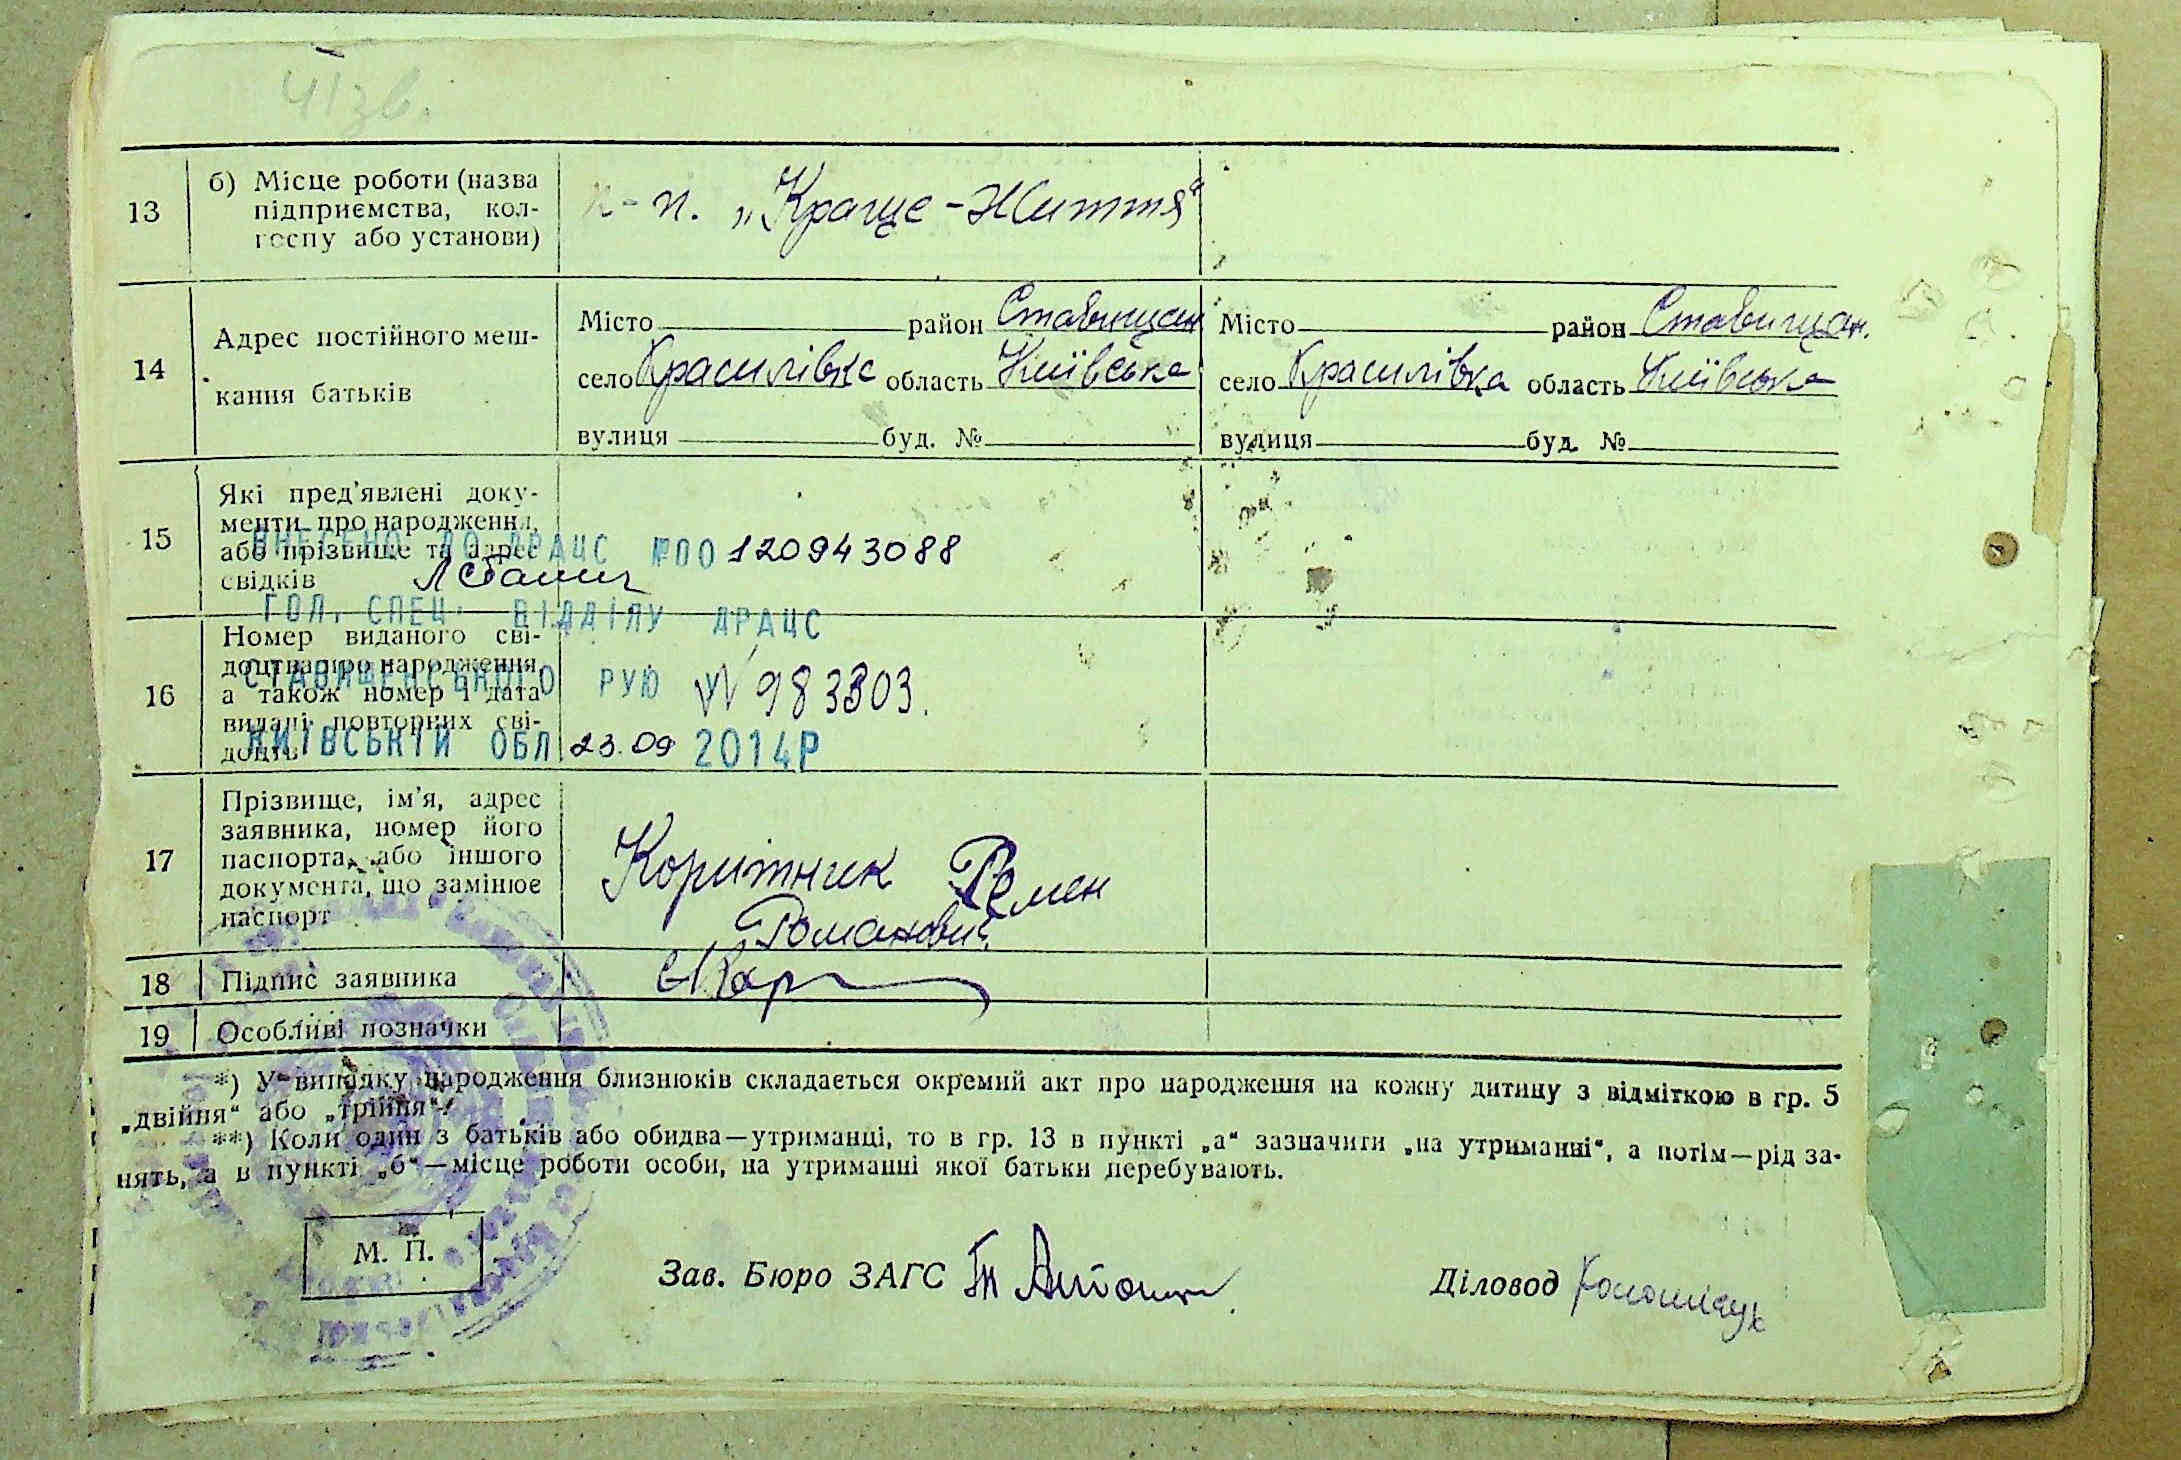 41зв.
13 б) Місце роботи (назва
підприємства, кол-
госпу або установи)
к-п. „Краще-Життя“
14 Адрес постійного меш-
кання батьків
Місто район Ставищан
село Красилівка область Київська
вулиця буд. №
Місто район Ставищан.
село Красилівка область Київська
вулиця буд. №
15 Які пред'явлені доку-
менти про народження,
або прізвище та адрес
свідків
ВНЕСЕНО ДО ДРАЦС №00120943088
ГОЛ. СПЕЦ. ВІДДІЛУ ДРАЦС
СТАВИЩЕНСЬКОГО РУЮ У
КИЇВСЬКІЙ ОБЛ 23.09 2014Р
16 Номер виданого сві-
доцтва про народження,
а також номер і дата
видачі повторних сві-
доцтв
№ 983303.
17 Прізвище, ім'я, адрес
заявника, номер його
паспорта, або іншого
документа, що замінює
паспорт
Корітник Семен
Романович
18 Підпис заявника
19 Особливі позначки
*) У випадку народження близнюків складається окремий акт про народження на кожну дитину з відміткою в гр. 5
„двійня“ або „трійня“.
**) Коли один з батьків або обидва—утриманці, то в гр. 13 в пункті „а“ зазначити „на утриманні“, а потім—рід за-
нять, а в пункті „б“—місце роботи особи, на утриманні якої батьки перебувають.
М. П.
Зав. Бюро ЗАГС
Діловод